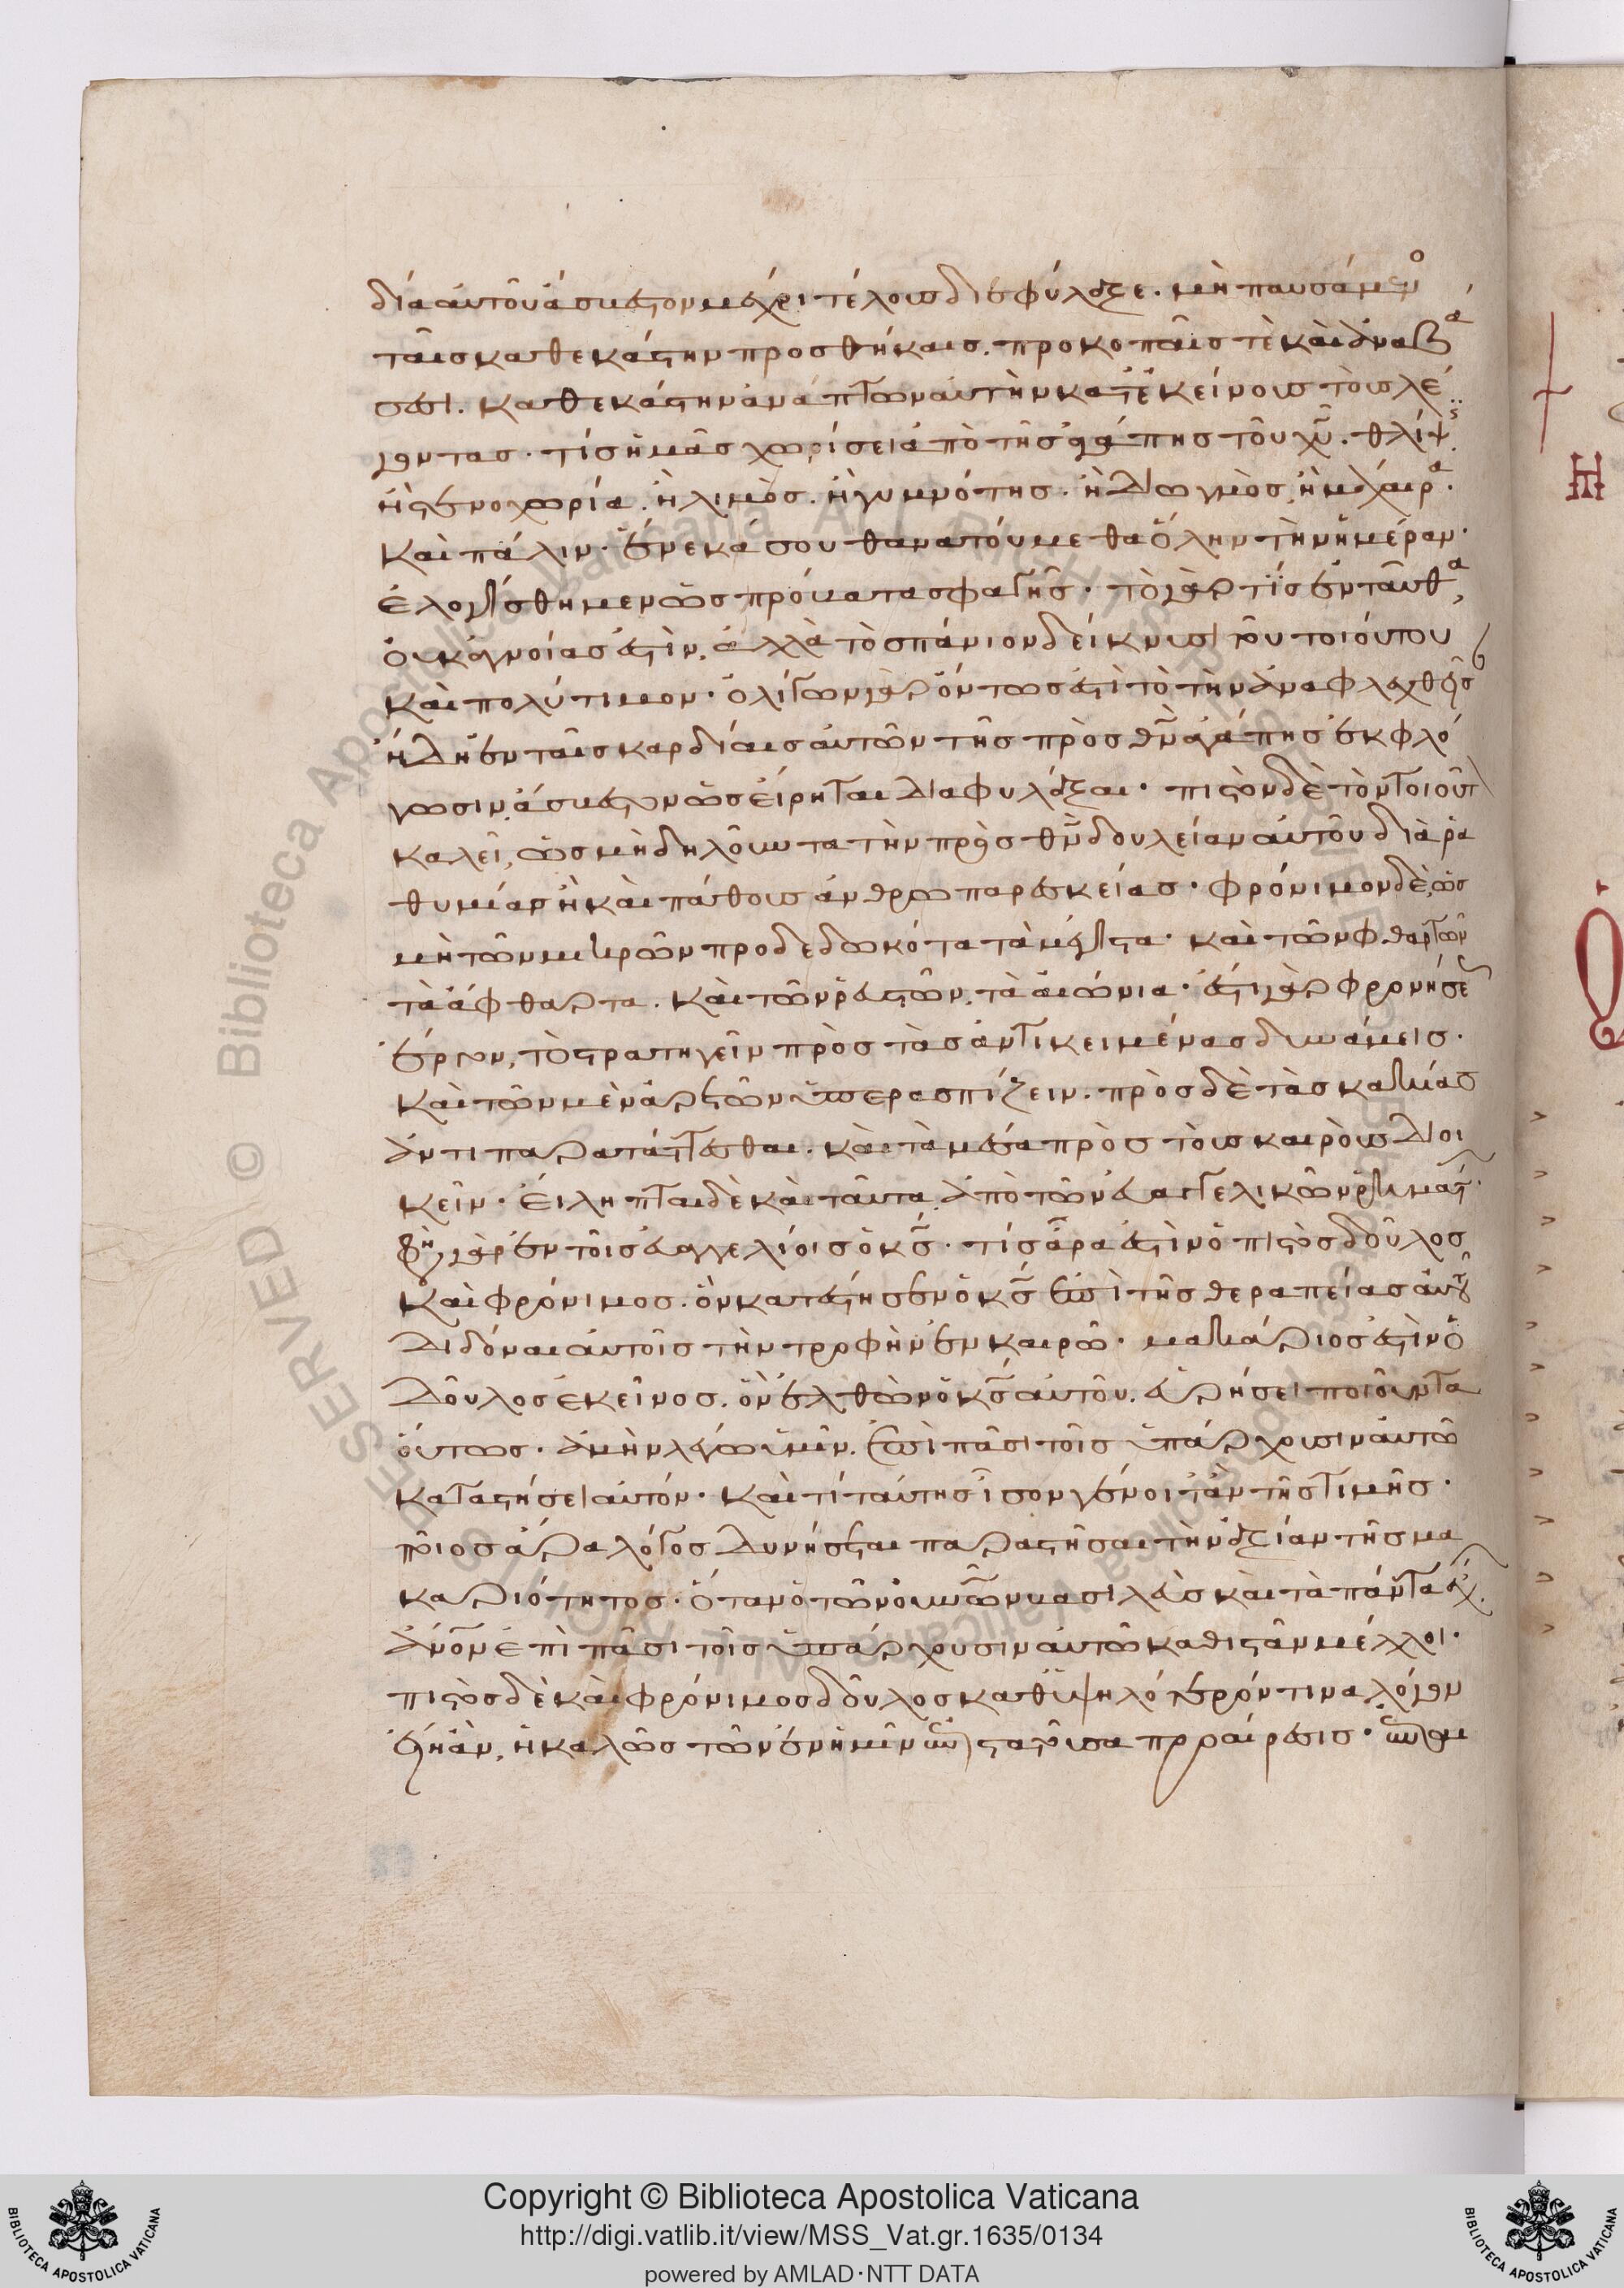 διὰ αὐτοῦ ἄσβεστον μέχρι τέλους διεφύλαξε. μὴ παυσάμενο
ταῖς καθεκάστην προσθήκαις. προκοπαῖς τὲ καὶ ἀναβά
σεσι. καθεκάστην ἀνάπτων αὐτὴν κατ' ἐκείνους τοὺς λέ
γοντας. τίς ἡμᾶς χωρίσει ἀπὸ τῆς ἀγάπης τοῦ χυ. θλίψις
ἢ στενοχωρία. ἢ λιμὸς. ἢ γυμνότης. ἢ διωγμὸς, ἢ μάχαιρα.
καὶ πάλιν. ἕνεκά σου θανατούμεθα ὅλην τὴν ἡμέραν.
ἐλογίσθημεν ὡς πρόβατα σφαγῆς. τὸ γὰρ τίς ἐνταῦθα,
οὐκ ἀγνοίας ἐστὶν, ἀλλὰ τὸ σπάνιον δείκνυσι τοῦ τοιούτου
καὶ πολύτιμον. ὀλίγων γὰρ ὄντως ἐστὶ τὸ τὴν ἀναφλεχθεῖσ
ἤδη ἐν ταῖς καρδίαις αὐτῶν τῆς πρὸς θν ἀγάπης ἐκφλό
γωσιν, ἄσβεστον ὡς εἴρηται διαφυλάξαι. πιστὸν δὲ τὸν τοιοῦτ
καλεῖ, ὡς μὴ δηλοῦντα τὴν πρὸς θν δουλείαν αὐτοῦ διὰ ῥα
θυμίαν ἢ καὶ πάθους ἀνθρωπαρεσκείας. φρόνιμον δὲ, ὡς
μὴ τῶν μικρῶν προδεδωκότα τὰ μέγιστα. καὶ τῶν φθαρτῶν
τὰ ἄφθαρτα. καὶ τῶν ῥευστῶν, τὰ αἰώνια. ἔστι γὰρ φρονήσε
ἔργον, τὸ στρατηγεῖν πρὸς τὰς ἀντικειμένας δυνάμεις.
καὶ τῶν μὲν ἀρετῶν ὑπερασπίζειν. πρὸς δὲ τὰς κακίας
ἀντιπαρατάττεσθαι. καὶ τὰ μέσα πρὸς τοὺς καιροὺς διοι
κεῖν. εἴληπται δὲ καὶ ταῦτα ἀπὸ τῶν εὐαγγελικῶν ῥημάτ.
φη γὰρ ἐν τοῖς εὐαγγελίοις ὁ κς. τίς ἄρα ἐστὶν ὁ πιστὸς δοῦλος
καὶ φρόνιμος. ὃν κατέστησεν ὁ κς ἐπὶ τῆς θεραπείας αὐτοῦ
διδόναι αὐτοῖς τὴν τροφὴν ἐν καιρῶ. μακάριος ἐστὶν ὁ
δοῦλος ἐκεῖνος. ὃν ἐλθὼν ὁ κς αὐτοῦ. εὑρήσει ποιοῦντα
οὕτως. ἀμὴν λέγω ὑμῖν. ἐπὶ πᾶσι τοῖς ὑπάρχουσιν αὐτῶ
καταστήσει αὐτόν. καὶ τί ταύτης ἶσον γένοιτ' ἂν τῆς τιμῆς.
ποῖος ἄρα λόγος δυνήσεται παραστῆσαι τὴν ἀξίαν τῆς μα
καριότητος. ὅταν ὁ τῶν οὐνῶν βασιλεὺς καὶ τὰ πάντα ἔχ.
ἀνον ἐπὶ πᾶσι τοῖς ὑπάρχουσιν αὐτῶ καθιστᾶν μέλλοι.
πιστὸς δὲ καὶ φρόνιμος δοῦλος καθ' ὑψηλότερόν τινα λόγον
εἴη ἂν, ἡ καλῶς τῶν ἐν ἡμῖν ἐπιστατοῦσα προαίρεσις.